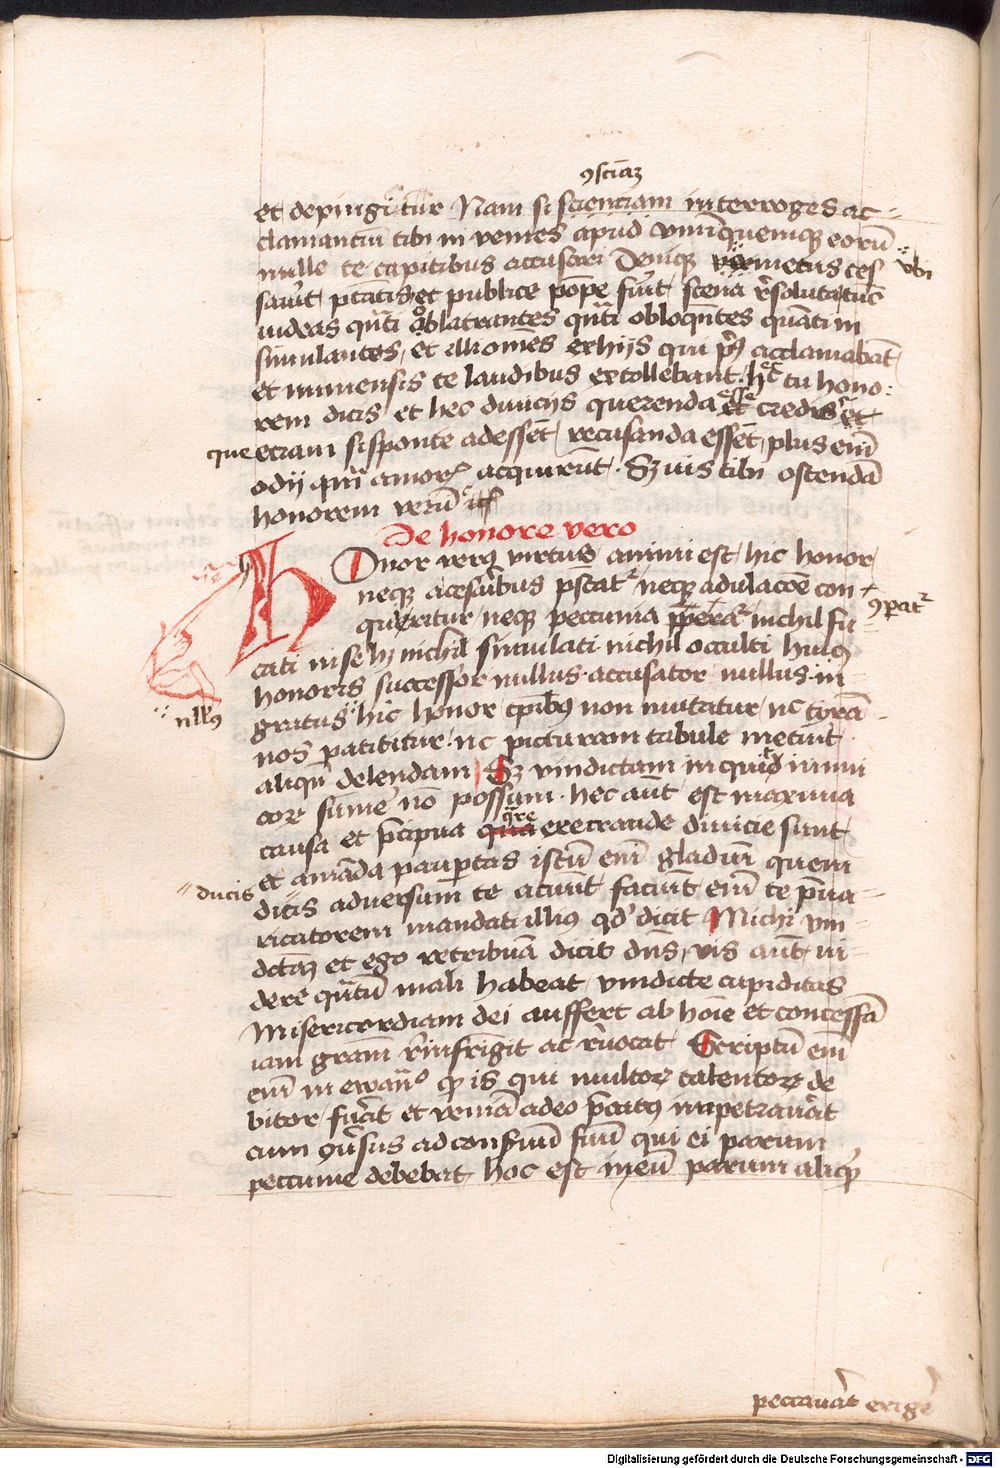 ↄsciā
et depingitur Nam si scienciam interroges ac
clamantiū tibi in venies apud vnūquemque eorū
mille te capitibus accusari Denique metus ces
vbi
sauit ptātis et publice pōpe fuit scena
videas oblatrantes obloqūtes quāti in
simulantes et illi omēs ex hijs qui acclamabāt
et inmensis te laudibus extollebant hec tu hono
rem dicis et hec diuicijs querenda esse credis et
que etiam si sponte adessēt recusanda essēt plus enī
odij amor acquirēt Sz uis tibi ostendā
honorem verū
De honore vero
Honor verus virtus animi est hic honor
neque a cesaribus neque adulacōe con
ↄparat
queritur neque peccunia nichil fu
cati in se hz nichil simulati nichil occulti huius
honoris successor nullus accusator nullus in
nullus
gratus hic honor non mutatur nc tyrā
nos patititur nc picturam tabule metuit
aliqn delendam Sz vindictam inquid inimi
cor sume nō possum hec aūt est maxima
causa et pͥcipua qre execrande diuicie sunt
et amāda paupertas istum enī gladium quem
ducis
dicis adversum te acuūt faciūt enī te pͥua
ricatorem mandati illius qd dicit Michi vin
dctāz et ego retribuā dicit dns vis aūt vi
dere qūtū mali habeat vindicte cupiditas
Misericordiam dei auffert ab hoīe et concessā
iam gram rͥinfringit ac rͥuocat Scriptū enī
enī in ewāo qd is qui multor talentor de
bitor fuat et veniā adeo pcatus impetrauat
cum ↄuersus ad conseruū suū qui ei parum
peccunie debebat hoc est in eū parum aliquid
peccauāt exige